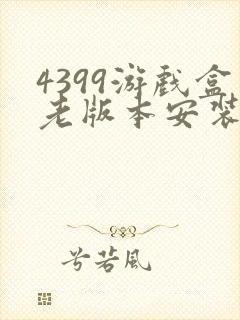 4399游戏盒
老版本安装
兮若风